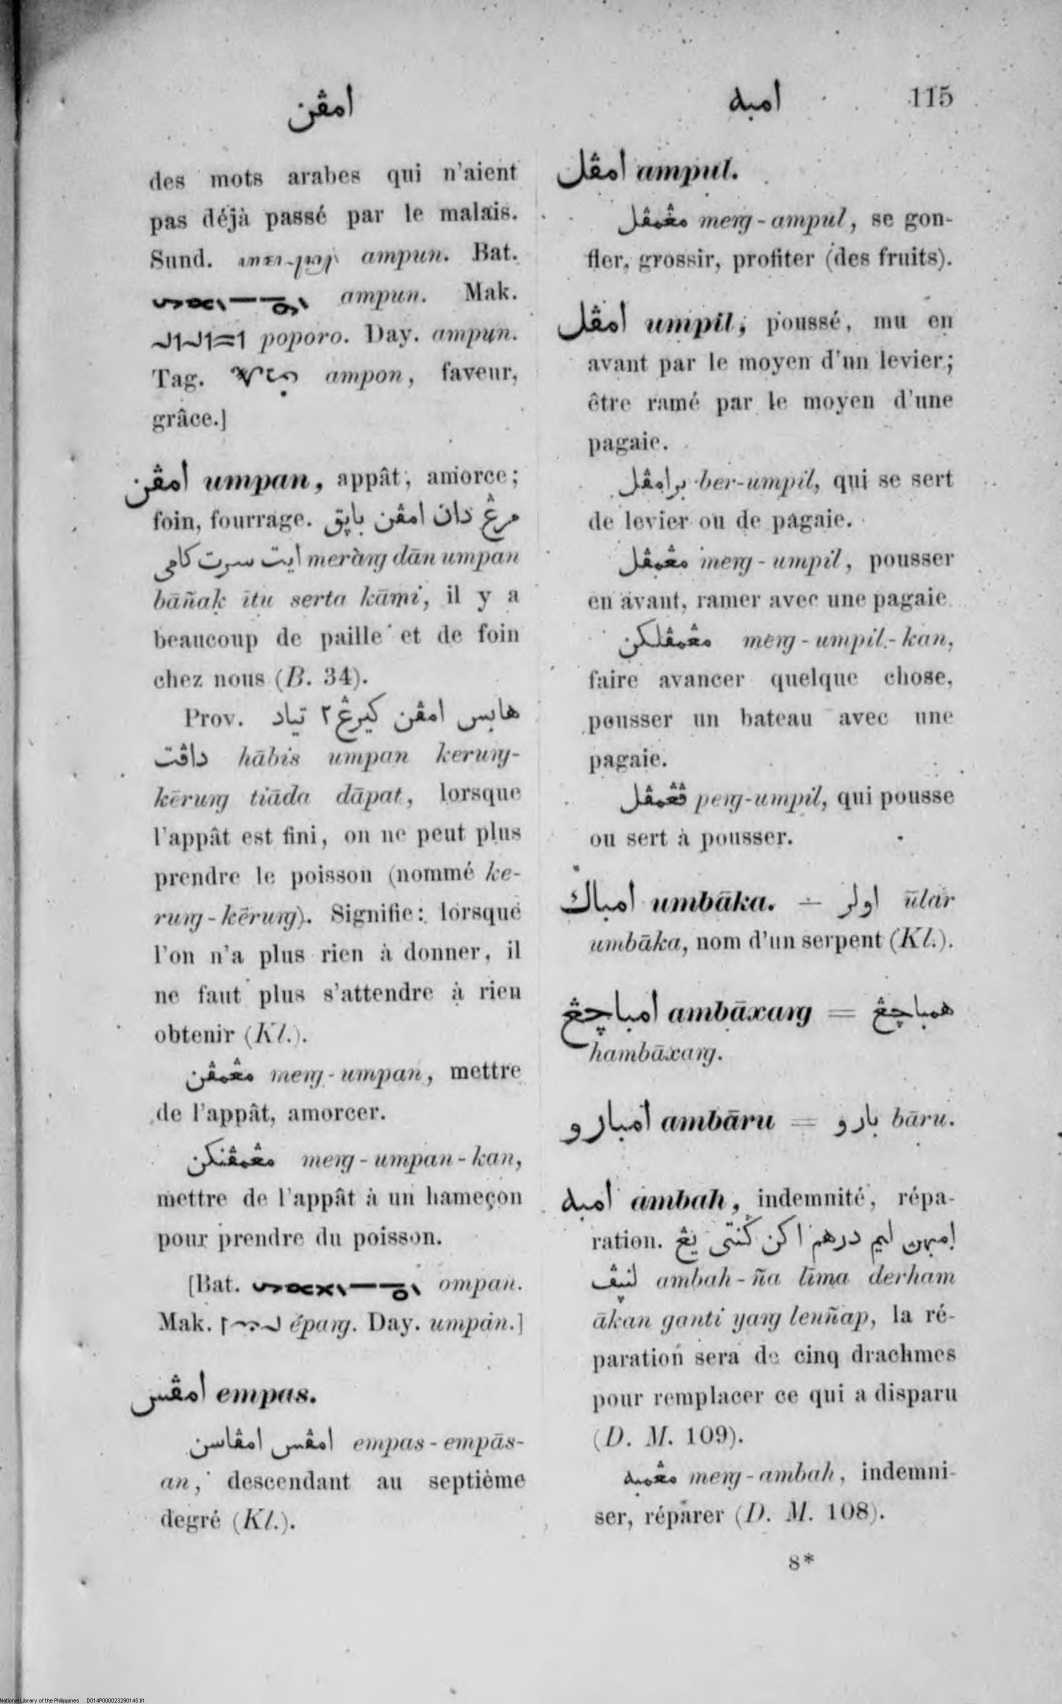 امڤن
امبه 115
des mots arabes qui n'aient
pas déjà passé par le malais.
Sund. ampun. Bat.
ampun. Mak.
poporo. Day. ampun.
Tag. ampon, faveur,
grâce.]
امڤن umpan, appât, amorce;
foin, fourrage. مرڠ دان امڤن باپق
ايت سرت كامي merang dān umpan
bāñak ītu serta kāmi, il y a
beaucoup de paille et de foin
chez nous (B. 34).
Prov. هابس امڤن كيرڠ٢ تياد
داڤت hābis umpan kerung-
kērung tiāda dāpat, lorsque
l'appât est fini, on ne peut plus
prendre le poisson (nommé ke-
rung-kērung). Signifie: lorsque
l'on n'a plus rien à donner, il
ne faut plus s'attendre à rien
obtenir (Kl.).
مڠمڤن meng-umpan, mettre
de l'appât, amorcer.
مڠمڤنكن meng-umpan-kan,
mettre de l'appât à un hameçon
pour prendre du poisson.
[Bat. ompan.
Mak. épang. Day. umpan.]
امڤس empas.
امڤس امڤاسن empas-empās-
an, descendant au septième
degré (Kl.).
امڤل ampul.
مڠمڤل meng-ampul, se gon-
fler, grossir, profiter (des fruits).
امڤل umpil, poussé, mu en
avant par le moyen d'un levier;
être ramé par le moyen d'une
pagaie.
برامڤل ber-umpil, qui se sert
de levier ou de pagaie.
مڠمڤل meng-umpil, pousser
en avant, ramer avec une pagaie
مڠمڤلكن meng-umpil-kan,
faire avancer quelque chose,
pousser un bateau avec une
pagaie.
ڤڠمڤل peng-umpil, qui pousse
ou sert à pousser.
امباك umbāka. — اولر ūlar
umbāka, nom d'un serpent (Kl.).
امباچڠ ambāxang = همباچڠ
hambāxang.
امبارو ambāru = بارو bāru.
امبه ambah, indemnité, répa-
ration. امبهن ليم درهم اكن ڬنتي يڠ
لنپڤ ambah-ña līma derham
ākan ganti yang leññap, la ré-
paration sera de cinq drachmes
pour remplacer ce qui a disparu
(D. M. 109).
مڠمبه meng-ambah, indemni-
ser, réparer (D. M. 108).
8*